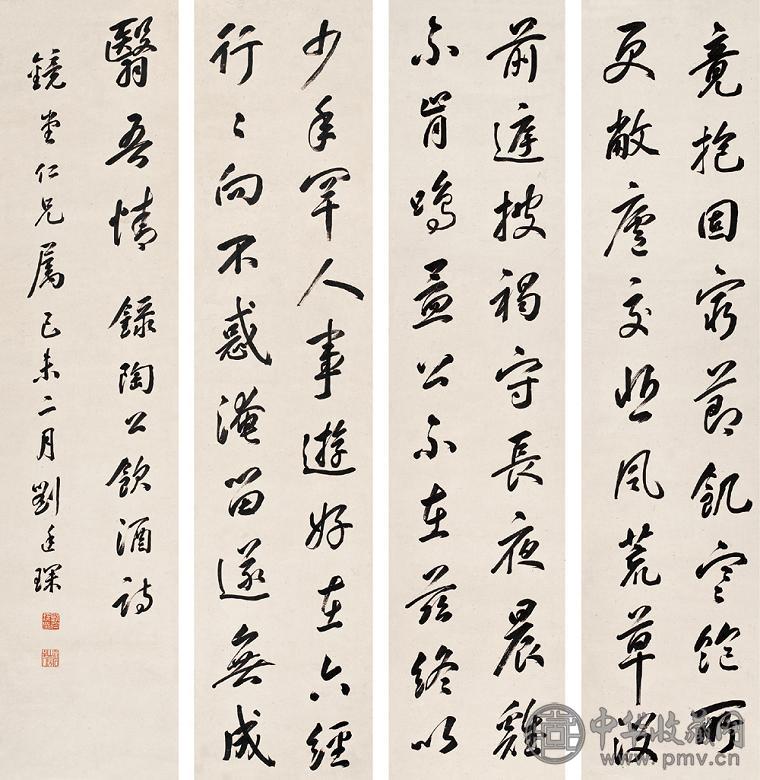 竟抱固窮節飢寒飽所
更敝廬交悲風荒草沒
前庭披褐守長夜晨雞
不肯鳴孟公不在茲終以
少年罕人事遊好在六經
行〻向不惑淹留遂無成
翳吾情 錄陶公飲酒詩
鏡堂仁兄屬 己未二月 劉廷琛
中华收藏网
www.pmv.cn